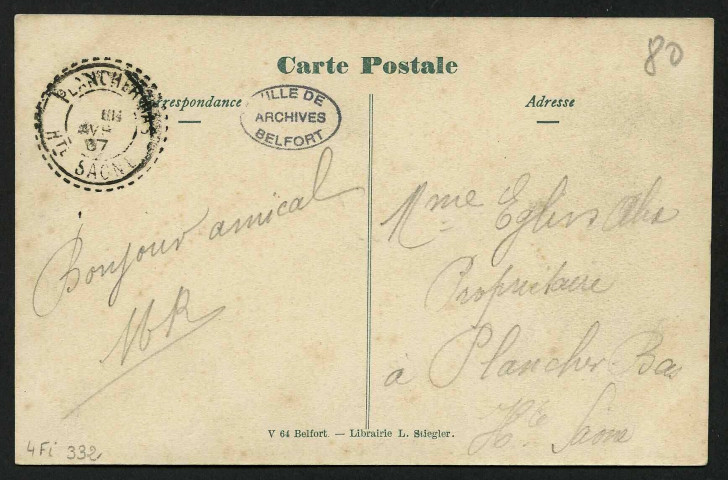 80
Carte Postale
Correspondance
Adresse
PLANCHER-BAS
AVR
07
HTE SAONE
VILLE DE
ARCHIVES
BELFORT
Bonjour amical
Mme Eglin
Propriétaire
à Plancher Bas
Hte Saone
V 64 Belfort. — Librairie L. Stiegler.
4Fi 332